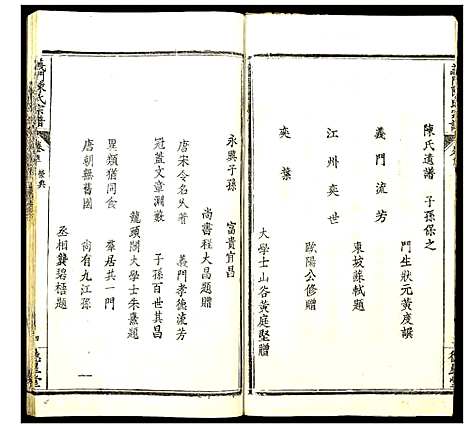 陳氏遺譜　子孫保之
門生狀元黃度譔
義門流芳
東坡蘇軾題
江州奕世
歐陽公修贈
奕葉
大學士山谷黃庭堅贈
永興子孫　富貴宜昌
尚書程大昌題贈
唐宋令名久著　義門孝德流芳
冠蓋文章淵藪　子孫百世其昌
龍頭閣大學士朱熹題
異類猶同食　群居共一門
唐朝無舊國　尚有九江孫
丞相龔碧梧題
義門陳氏宗譜